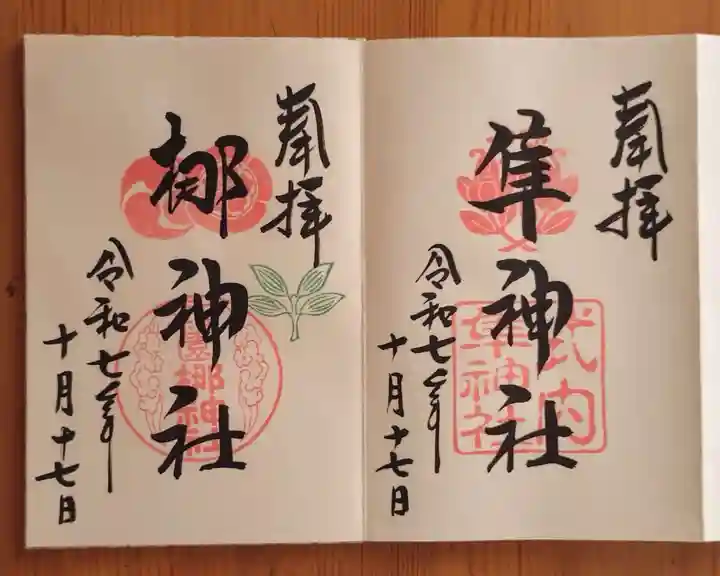 奉拝
隼神社
式内
隼神社
令和七年
十月十七日
奉拝
梛神社
梛神社
令和七年
十月十七日